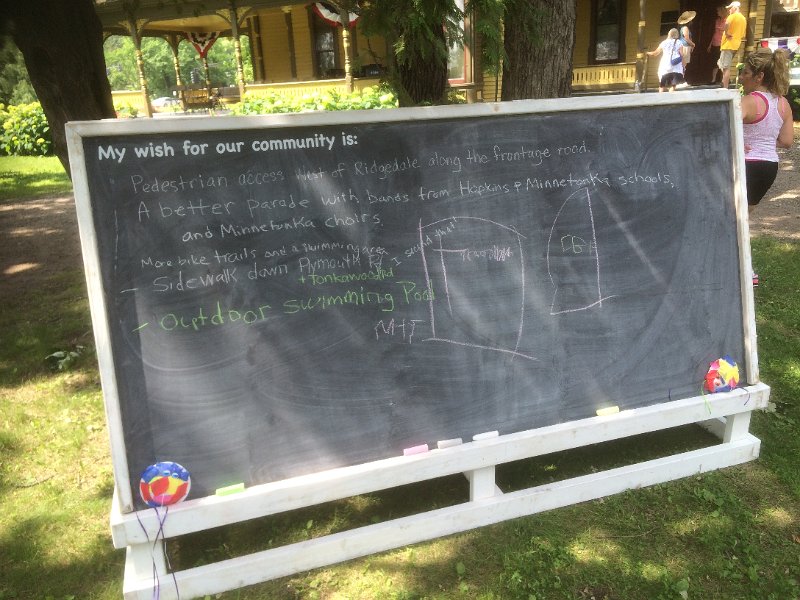 My wish for our community is:
Pedestrian access West of Ridgedale along the frontage road.
A better parade with bands from Hopkins & Minnetonka schools,
and Minnetonka choirs.
More bike trails and a swimming area
- Sidewalk down Plymouth Rd, I second that"
+ Tonkawood Rd
- Outdoor swimming Pool